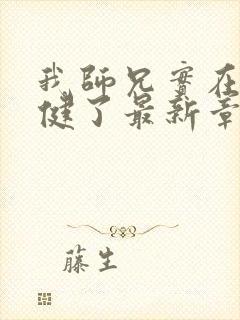 我師兄實在
健了最新章
藤生